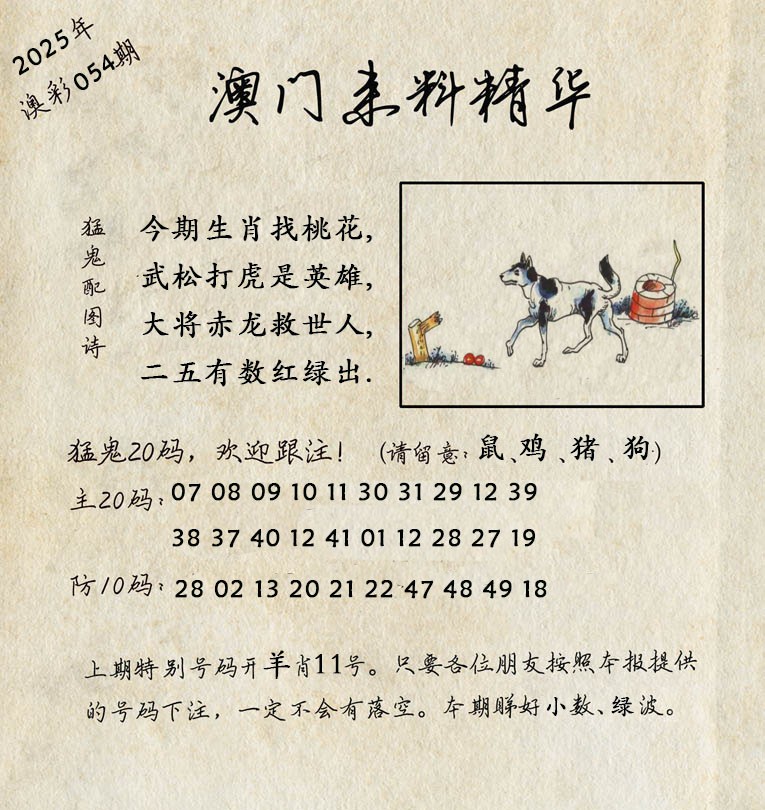 2025年
澳彩054期
澳门来料精华
猛鬼配图诗
今期生肖找桃花,
武松打虎是英雄,
大将赤龙救世人,
二五有数红绿出.
猛鬼20码，欢迎跟注！（请留意：鼠、鸡、猪、狗）
主20码：07 08 09 10 11 30 31 29 12 39
38 37 40 12 41 01 12 28 27 19
防10码：28 02 13 20 21 22 47 48 49 18
上期特别号码开羊肖11号。只要各位朋友按照本报提供
的号码下注，一定不会有落空。本期睇好小数、绿波。